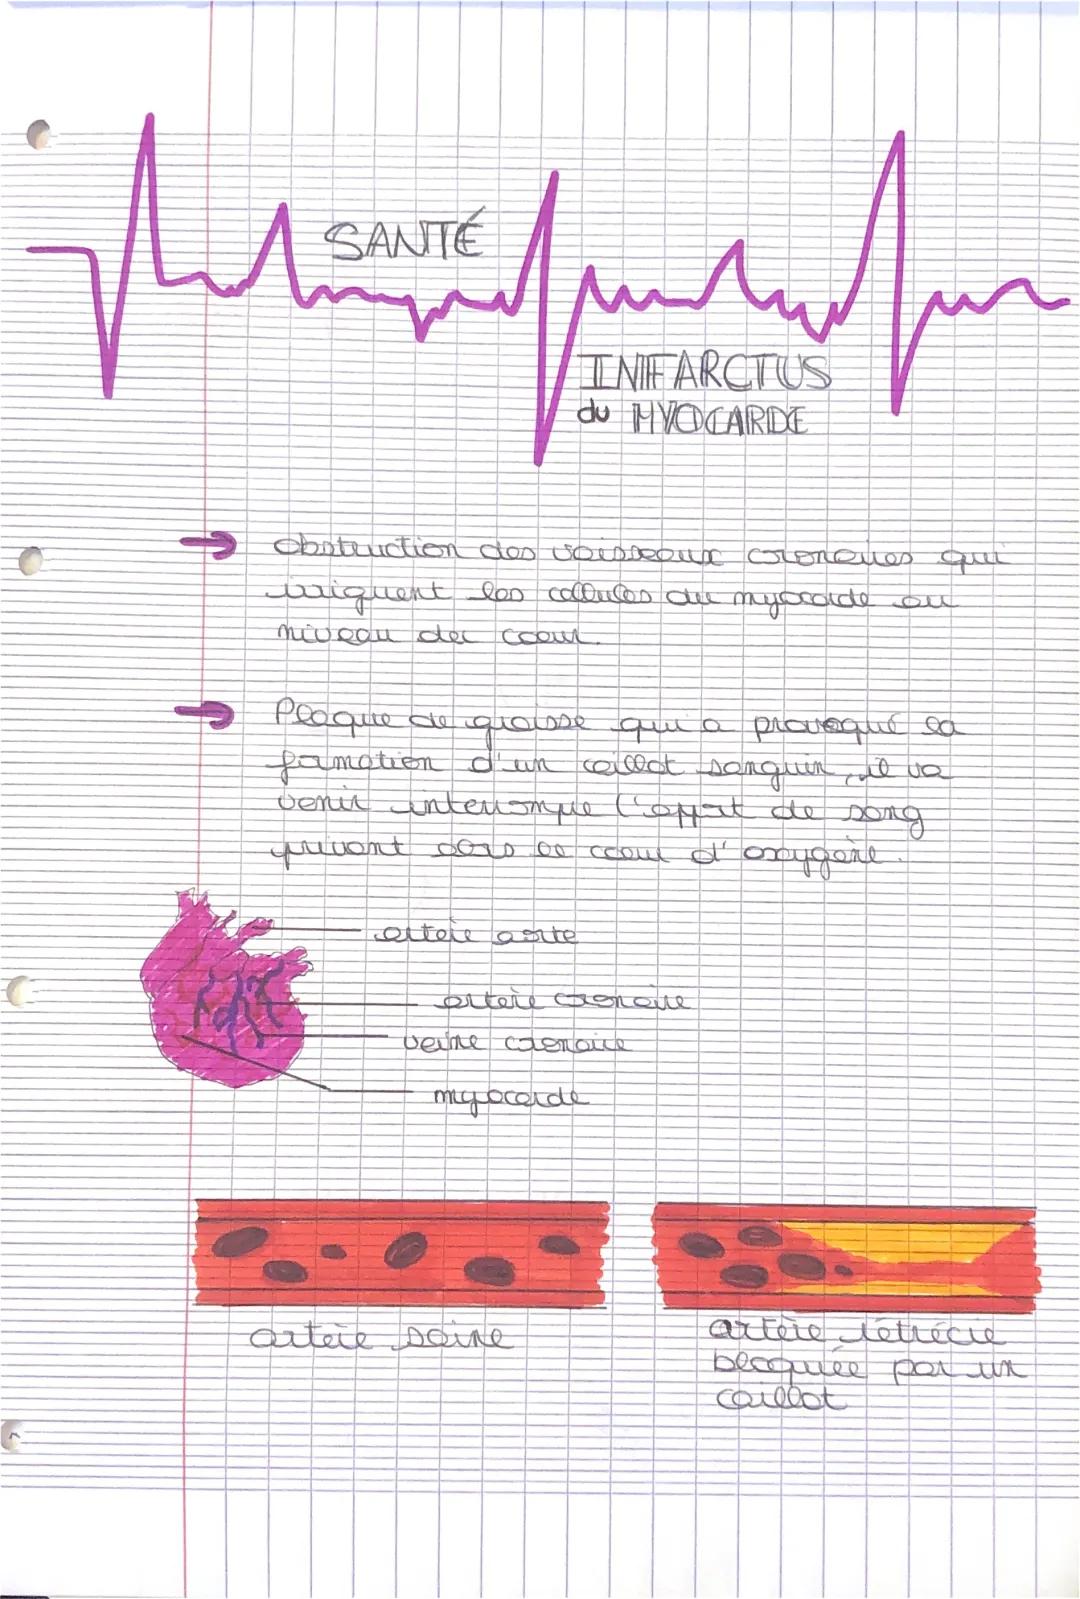 SANTÉ
INFARCTUS
du MYOCARDE
→ Obstruction des vaisseaux coronaires qui
irriguent les cellules du myocarde au
niveau du coeur.
→ Plaque de graisse qui a provoqué la
formation d'un caillot sanguin, il va
venir interrompre l'apport de sang
privant alors le coeur d'oxygène.
artère aorte
artère coronaire
veine coronaire
myocarde
artère saine
artère rétrécie
bloquée par un
caillot